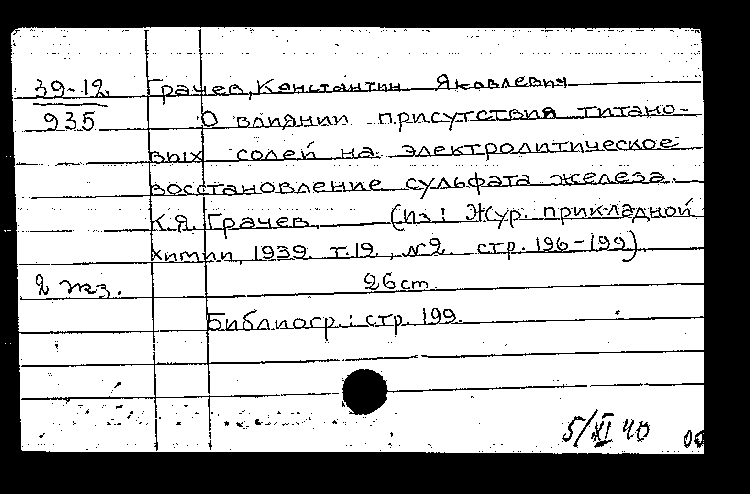 39-12 Грачев, Константин Яковлевич
935 О влиянии присутствия титано-
вых солей на электролитическое
восстановление сульфата железа.
К.Я. Грачев. (Из: Жур. прикладной
химии, 1939. т.12, №2. стр. 196-199).
2 экз. 26 cm.
Библиогр.: стр. 199.
5/XI 40